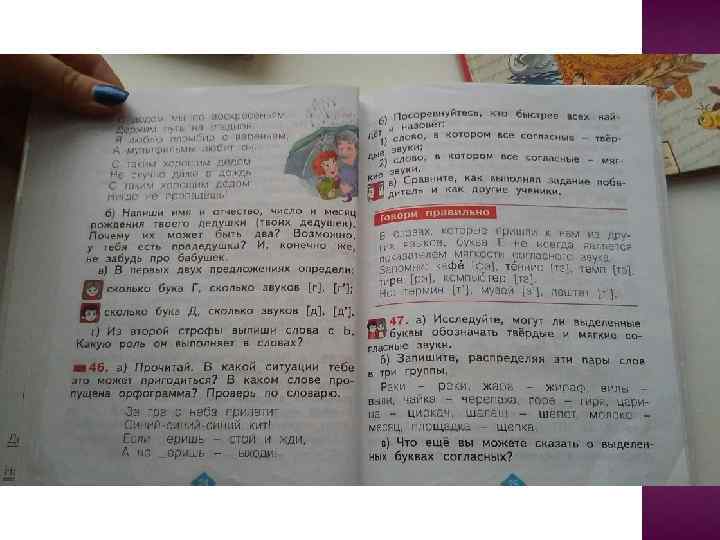 С дедом мы по воскресеньям
Держим путь на стадион.
Я люблю пломбир с вареньем,
А мультфильмы любит он.
С таким хорошим дедом
Не скучно даже в дождь.
С таким хорошим дедом
Нигде не пропадёшь!
б) Напиши имя и отчество, число и месяц
рождения твоего дедушки (твоих дедушек).
Почему их может быть два? Возможно,
у тебя есть прадедушка? И, конечно же,
не забудь про бабушек.
в) В первых двух предложениях определи:
сколько букв Г, сколько звуков [г], [г'];
сколько букв Д, сколько звуков [д], [д'].
г) Из второй строфы выпиши слова с Ь.
Какую роль он выполняет в словах?
46. а) Прочитай. В какой ситуации тебе
это может пригодиться? В каком слове про-
пущена орфограмма? Проверь по словарю.
За три с неба
Синий-синий-синий кит!
Если еришь – стой и жди,
А не еришь – выходи
б) Посоревнуйтесь, кто быстрее всех най-
дёт и назовёт:
1) слово, в котором все согласные – твёр-
дые звуки;
2) слово, в котором все согласные – мяг-
кие звуки.
в) Сравните, как выполнял задание побе-
дитель и как другие ученики.
Говори правильно
В словах, которые пришли к нам из дру-
гих языков, буква Е не всегда является
показателем мягкости согласного звука.
Запомни: кафе́ [фэ], те́ннис [тэ], темп [тэ],
тире [рэ], компьютер [тэ].
Но: термин [т'], музей [з'], паштет [т'].
47. а) Исследуйте, могут ли выделенные
буквы обозначать твёрдые и мягкие со-
гласные звуки.
б) Запишите, распределяя эти пары слов
в три группы.
Раки – реки, жара – жираф, вилы –
вышли, чайка – черепаха, горе – гиря, цари-
ца – циркач, шалаш – шёпот, молоко –
месяц, площадка – щепка.
в) Что ещё вы можете сказать о выделен-
ных буквах согласных?